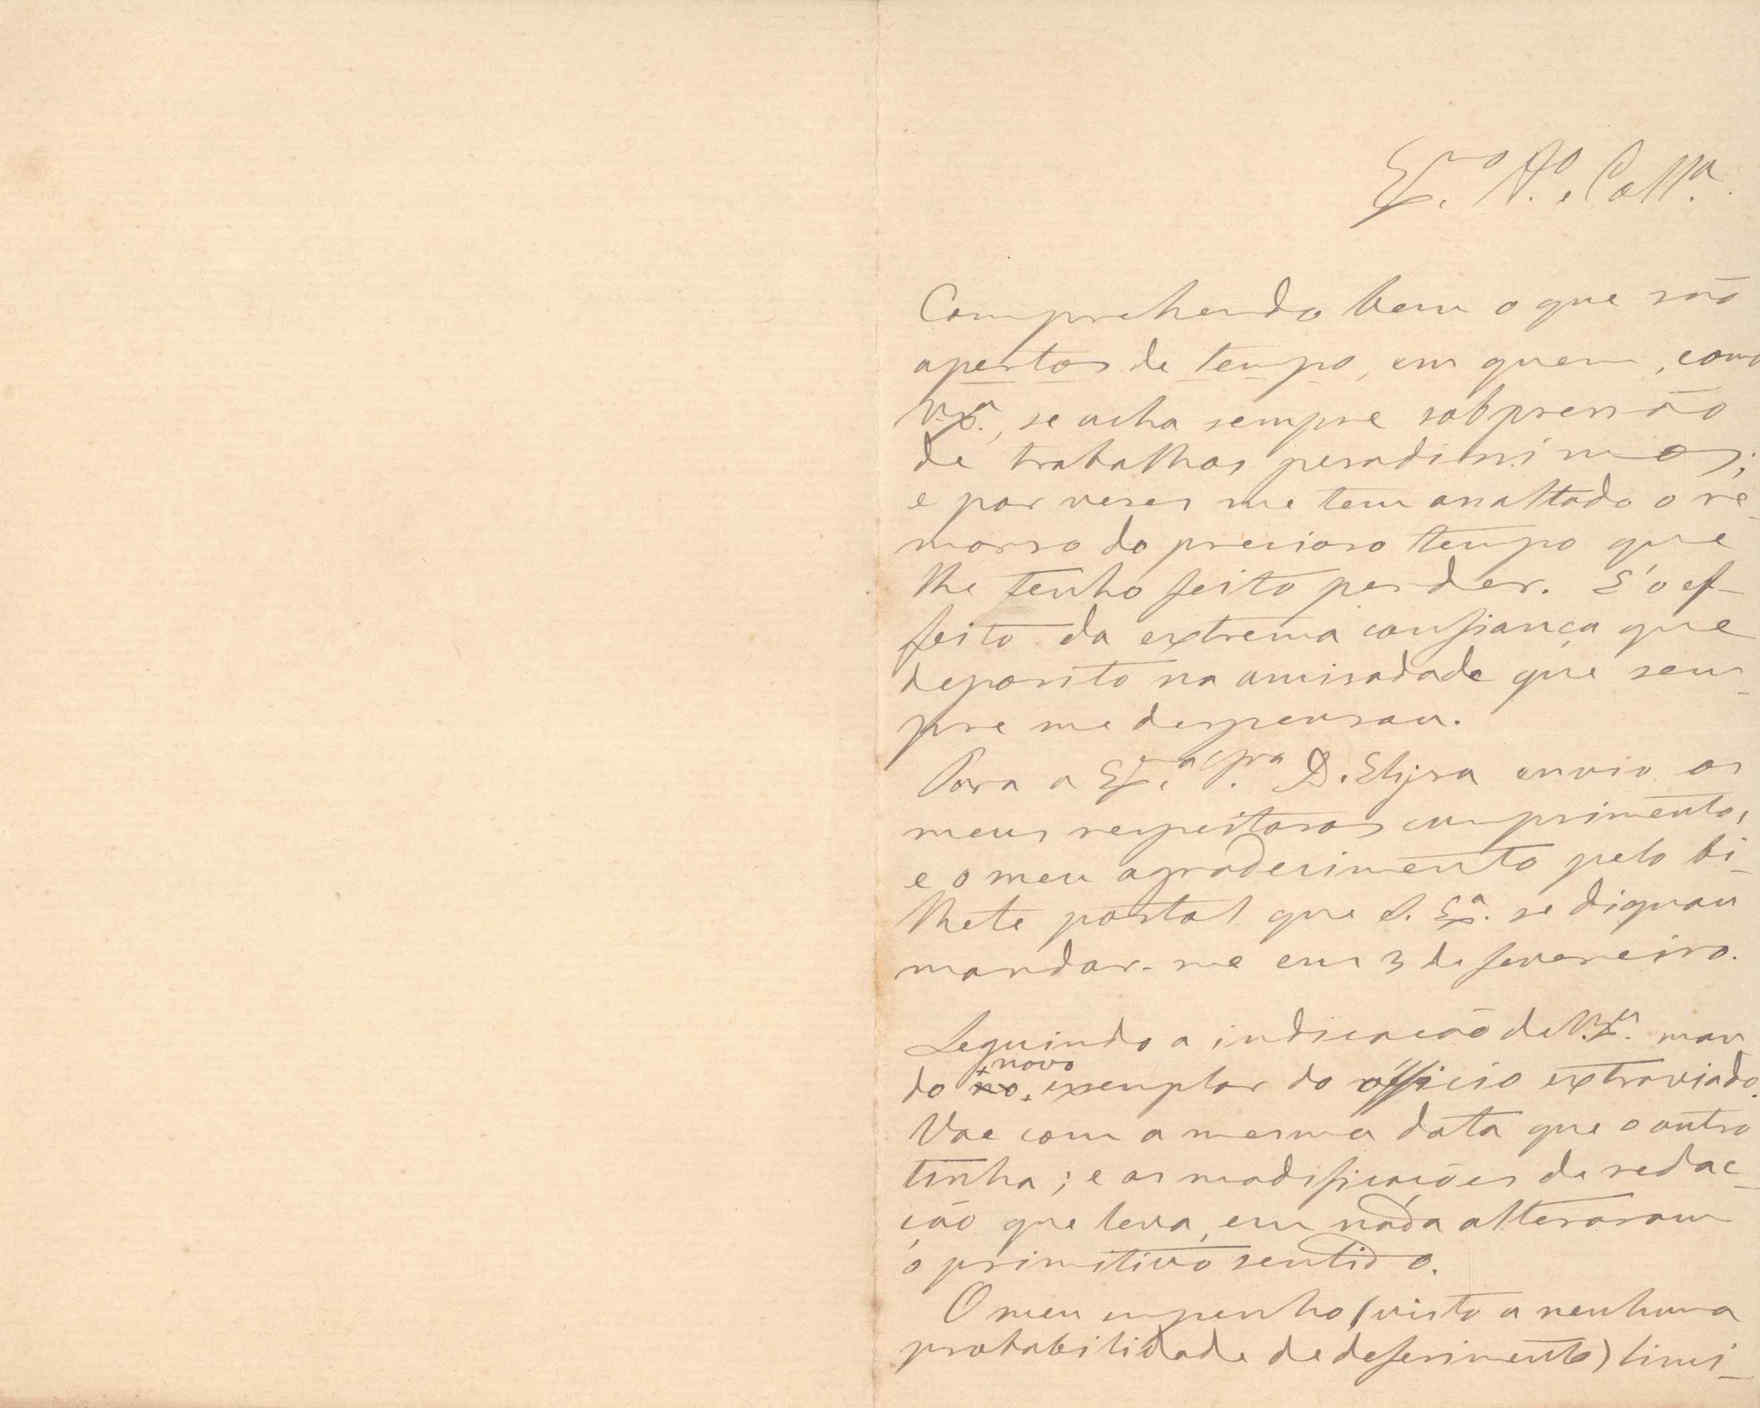 Ex.mo A.o e Coll.a
Comprehendo bem o que são
apertos de tempo, em quem, como
V. Ex.a, se acha sempre sob pressão
de trabalhos pesadissimos;
e por vezes me tem assaltado o re-
morso do precioso tempo que
lhe tenho feito perder. E' o ef-
feito da extrema confiança que
deposito na amisadade que sem-
pre me despensou.
Para a Ex.ma Sr.a D. Elysa envio os
meus respeitosos cumprimentos,
e o meu agradecimento pelo bi-
lhete postal que S. Ex.a se dignou
mandar-me em 3 de fevereiro.
Seguindo a indicação de V. Ex.a man
do no novo exemplar do officio extraviado.
Vae com a mesma data que o outro
tinha; e as modificações de redac-
ção que leva, em nada alteraram
o primitivo sentido.
O meu empenho (visto a nenhuma
probabilidade de deferimento) limi-